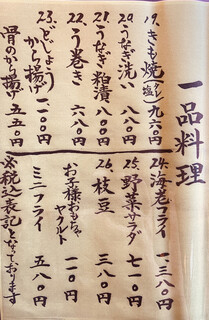 一品料理
19.きも焼(タレ・塩)九六〇円
20.うなぎ洗い 八八〇円
21.うなぎ粕漬 八八〇円
22.う巻き 八八〇円
23.どじょうから揚げ 一一〇〇円
骨のから揚げ 五五〇円
24.海老フライ 一三八〇円
25.野菜サラダ 七一〇円
26.枝豆 三八〇円
お子様おもちゃ
ヤクルト 一一〇円
ミニフライ 五八〇円
※税込表記となっております